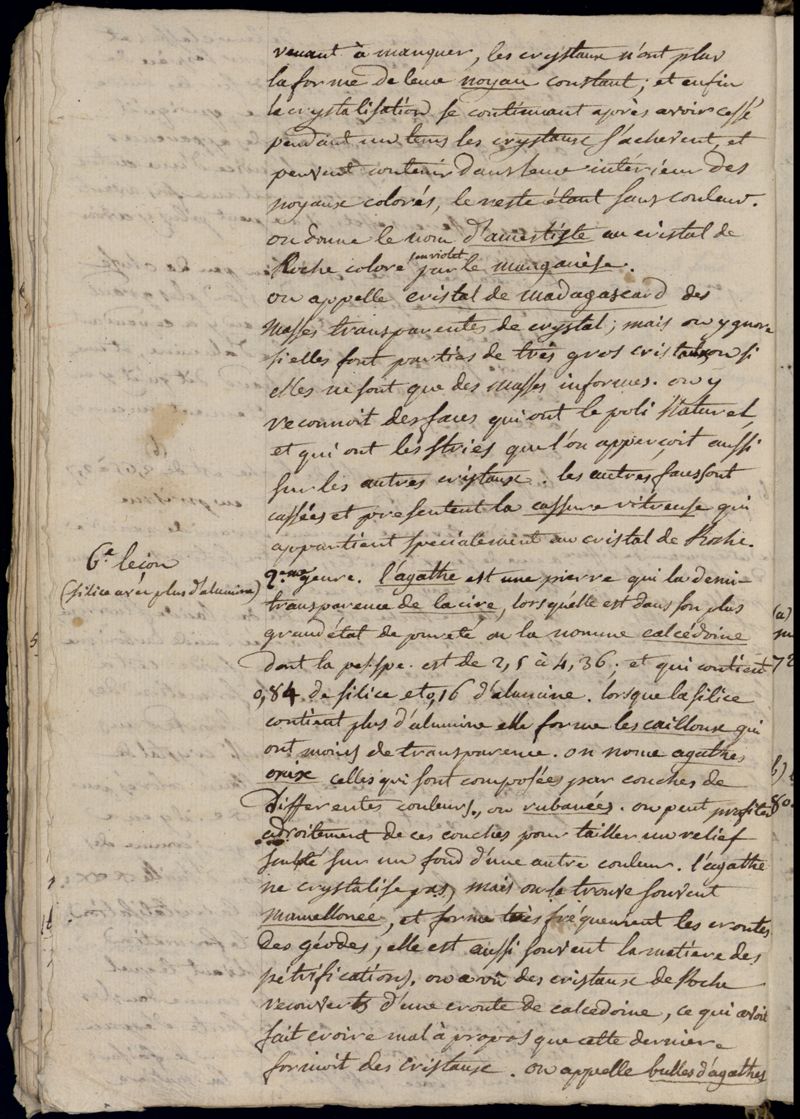 venant à manquer, les crystaux n'ont plus
la forme de leur noyau constant; et enfin
la crystalisation se continuant après avoir cessé
pendant un tems les crystaux s'achevent, et
peuvent contenir dans leur intérieur des
noyaux colorés, le reste étant sans couleur.
on donne le nom d'amestiste au cristal de
Roche coloré en violet par le manganèse.
on appelle cristal de madagascard des
masses transparentes de crystal; mais on ignore
si elles sont parties de très gros cristaux ou si
elles ne sont que des masses informes. on y
reconnoit des faces qui ont le poli Naturel,
et qui ont les stries que l'on apperçoit aussi
sur les autres cristaux. les autres faces sont
cassées et présentent la cassure vitreuse qui
appartient specialement au cristal de Roche.
6.e leçon
(silice avec plus d'alumine)
2.eme genre. l'agathe est une pierre qui la demi-
transparence de la cire, lorsqu'elle est dans son plus
grand état de pureté on la nomme calcédoine
dont la pes. spe. est de 2,5 à 4,36; et qui contient
0,84 de silice et 0,16 d'alumine. lorsque la silice
contient plus d'alumine elle forme les cailloux qui
ont moins de transparence. on nome agathes
onix celles qui sont composées par couches de
differentes couleurs, ou rubanées. on peut profiter
adroitement de ces couches pour tailler un relief
sculté sur un fond d'une autre couleur. l'agathe
ne crystalise pas, mais on la trouve souvent
mamellonée, et forme très fréquemment les croutes
des géodes; elle est aussi souvent la matiere des
pétrifications. on a vû des cristaux de Roche
recouverts d'une croute de calcedoine, ce qui avoit
fait croire mal à propos que cette derniere
formoit des cristaux. on appelle bulles d'agathes
(a)
72
b)
80